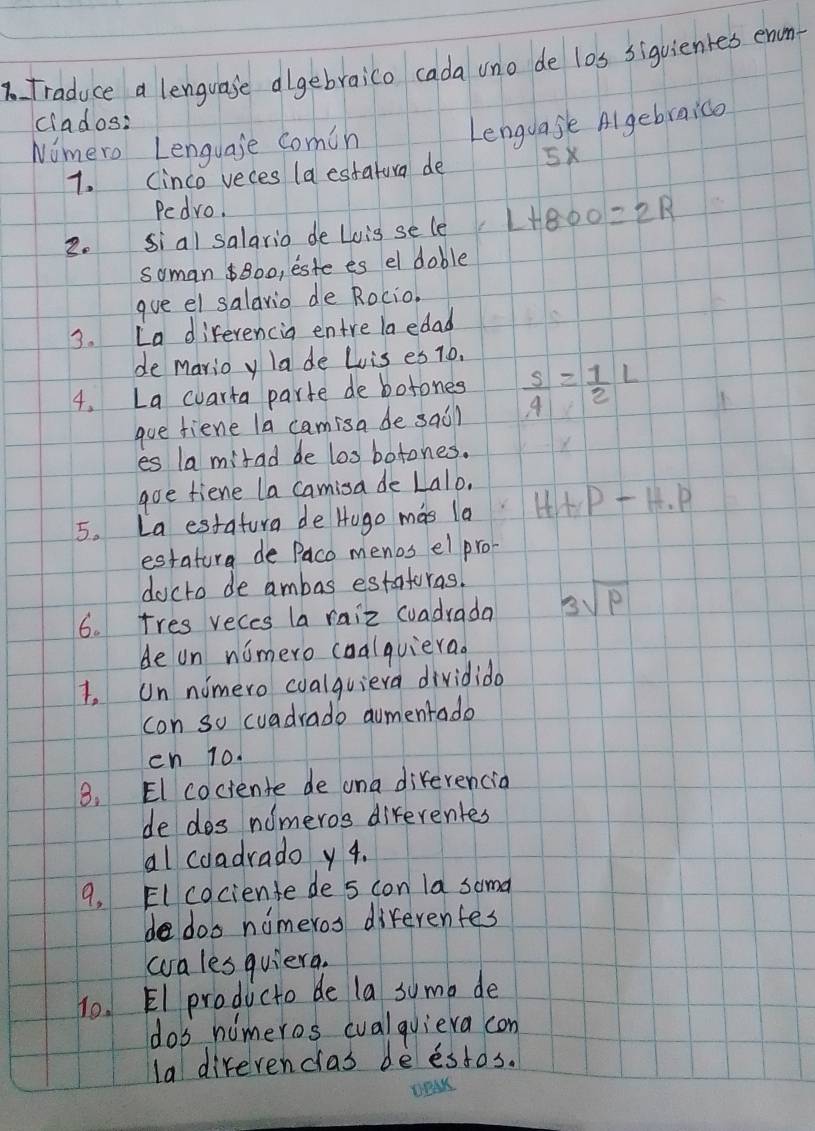 1. Traduce a lenguaje algebraico cada uno de los siguientes enun-
ciados:
Número Lenguaje común Lenguaje Algebraico
1. Cinco veces la estatura de 5x
Pedro.
2. si al salario de Luis se le L+800=2R
suman $800, éste es el doble
que el salario de Rocio.
3. La diferencia entre la edad
de Mario y la de Luis es 10.
4. La cuarta parte de botones S/4 = 1/2 L
que tiene la camisa de saúl
es la mitad de los botones.
que tiene la camisa de Lalo.
5. La estatura de Hugo más la H+P-H.P
estatura de Paco menos el pro-
ducto de ambas estaturas.
6. Tres veces la raiz cuadrada 3√P
de un número cualquiera.
7. Un número cualquiera dividido
con su cuadrado aumentado
en 10.
8. El cociente de una diferencia
de dos números diferentes
al cuadrado y 4.
9. El cociente de 5 con la suma
de dos números diferentes
cuales quiera.
10. El producto de la suma de
dos números cualquiera con
la diferencias de éstos.